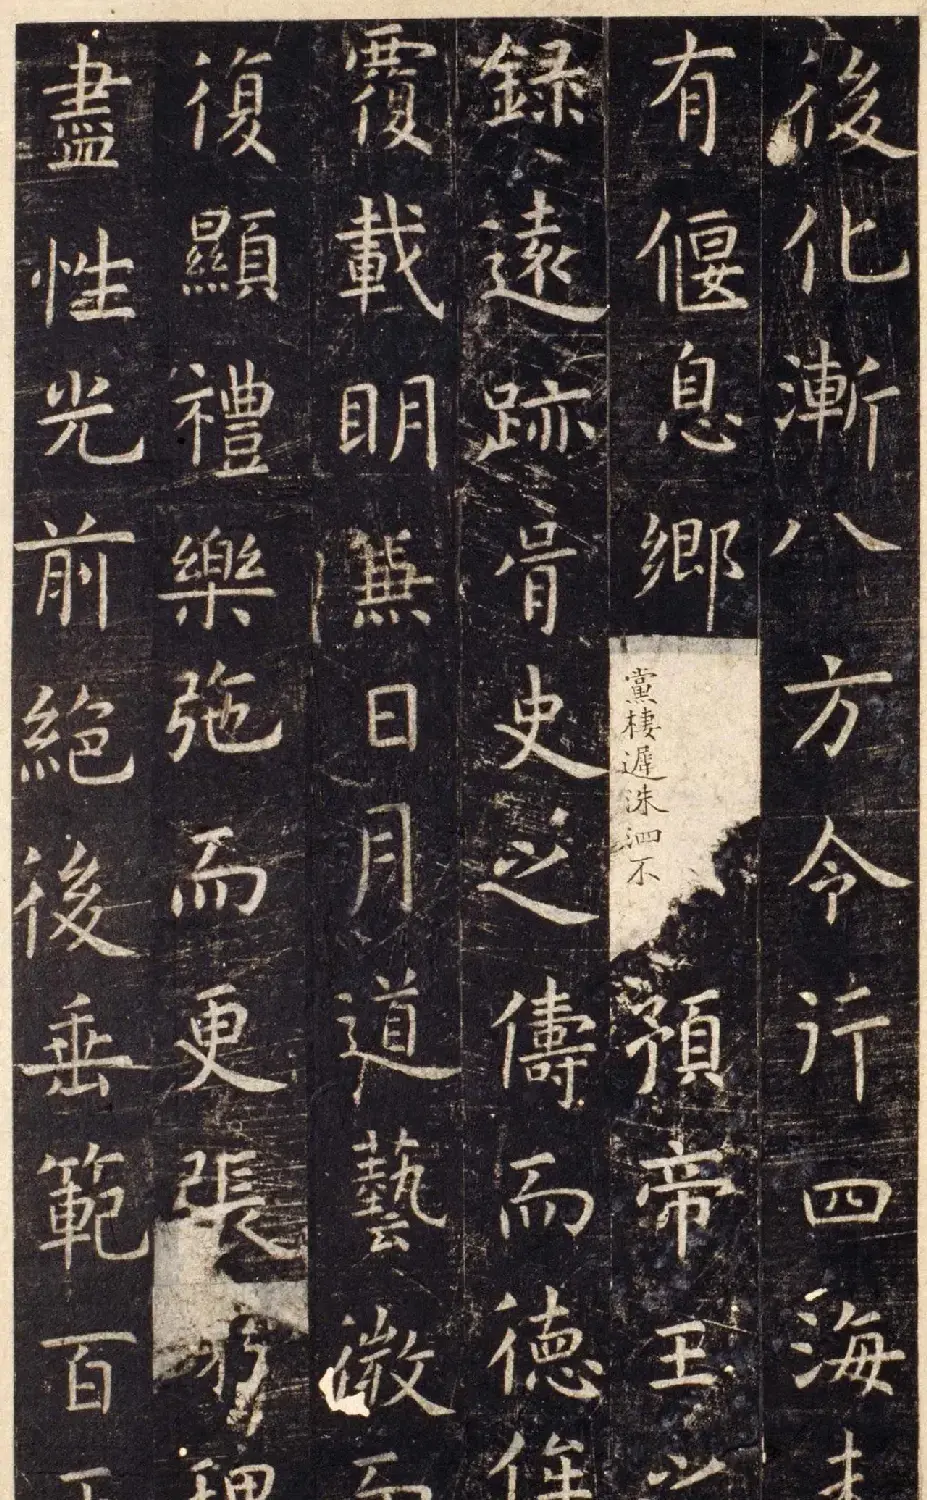 後化漸八方令行四海未
有偃息鄉黨棲遲洙泗不預帝王之
錄遠跡胥史之儔而德侔
覆載明兼日月道藝微而
復顯禮樂弛而更張理
盡性光前絕後垂範百